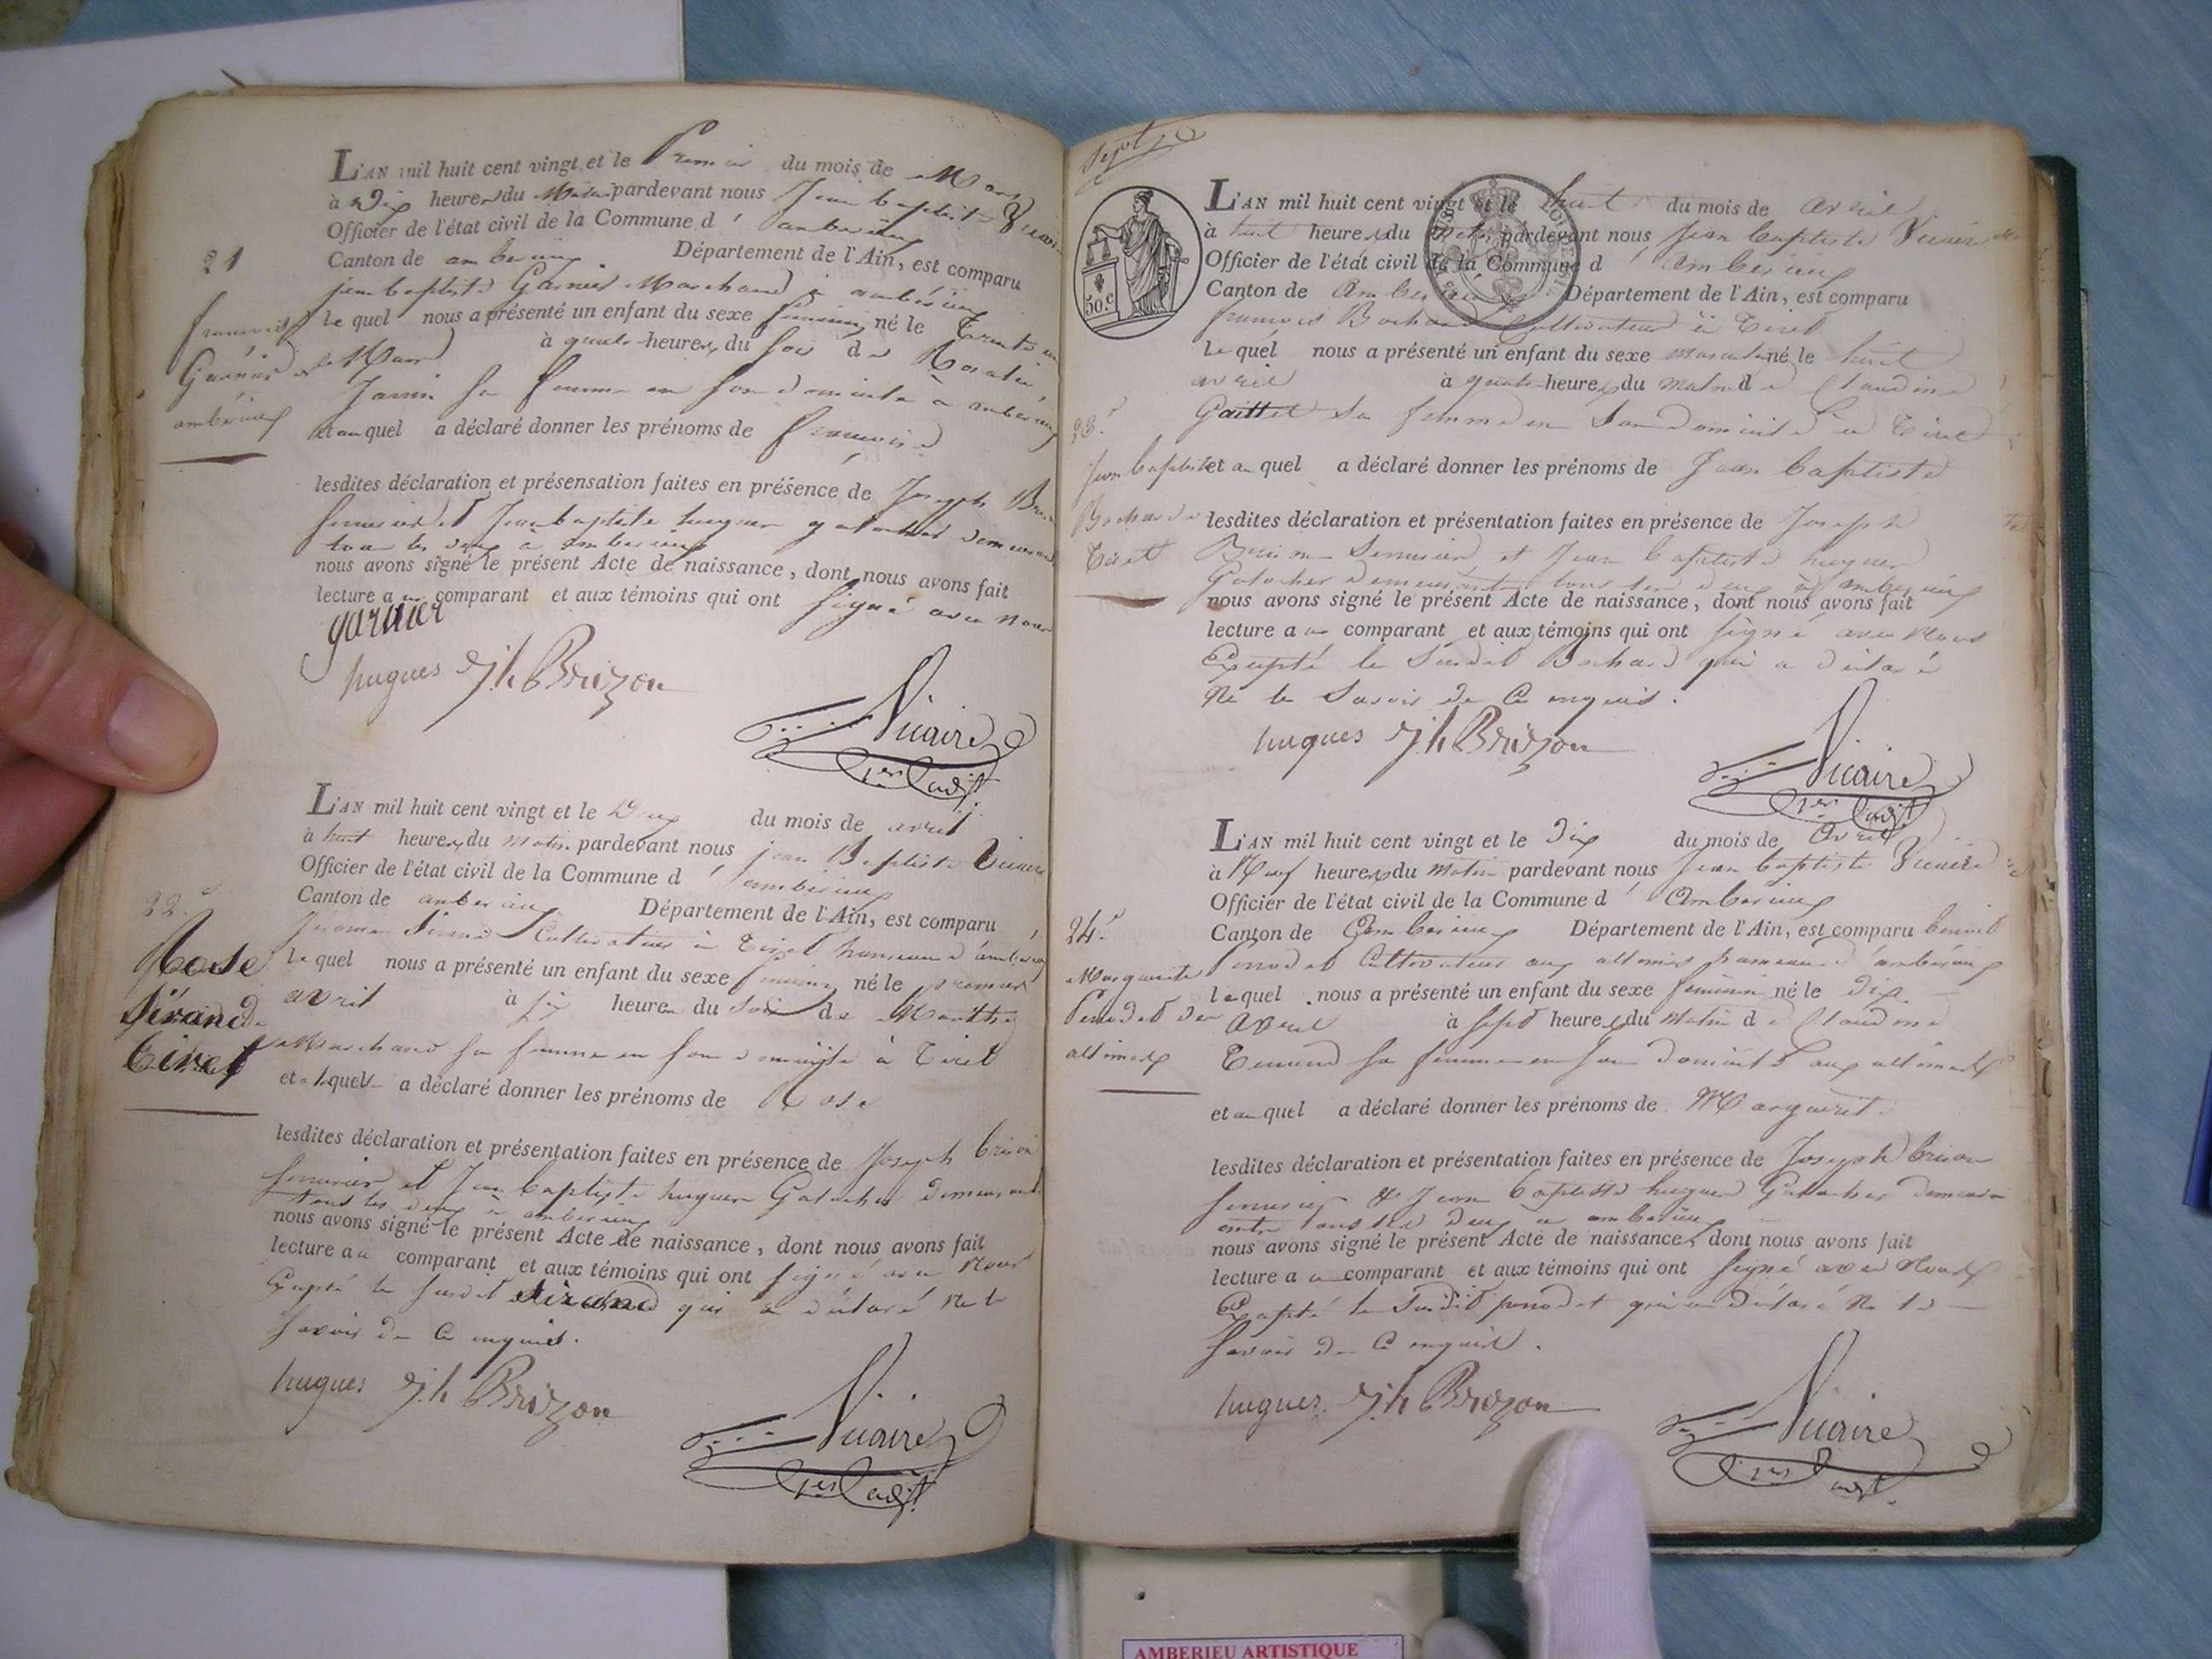 L'AN mil huit cent vingt et le Premier du mois de Mars
à Dix heures du Matin pardevant nous Jean baptiste Vicaire
Officier de l'état civil de la Commune d' ambérieux
Canton de ambérieux Département de l'Ain, est comparu
jean baptiste Garnier Marchand à ambérieux
21
lequel nous a présenté un enfant du sexe feminin né le Trente un
de Mars à quatre heures du soir de Rosalie
Janin sa femme en son domicile à ambérieux
et auquel a déclaré donner les prénoms de
Garnier
ambérieux
lesdites déclaration et présensation faites en présence de Joseph
serrurier et Jean baptiste hugues galocher demeurant
tous les deux à ambérieux
nous avons signé le présent Acte de naissance, dont nous avons fait
lecture au comparant et aux témoins qui ont signé avec nous
garnier
hugues jh Brizon
Vicaire
1er adjt
L'AN mil huit cent vingt et le Deux du mois de avril
à huit heures du matin pardevant nous jean Baptiste Vicaire
Officier de l'état civil de la Commune d' ambérieux
Canton de ambérieux Département de l'Ain, est comparu
Jérome Sirand Cultivateur à Tiret hameau d'ambérieux
22.e
Rose
Sirand de
Tiret
lequel nous a présenté un enfant du sexe feminin né le premier
avril à six heures du Soir de Marthe
Marchand sa femme en son domicile à Tiret
et alaquelle a déclaré donner les prénoms de Rose
lesdites déclaration et présentation faites en présence de Joseph brison
serrurier et Jean baptiste hugues Galocher demeurant
tous les deux à ambérieux
nous avons signé le présent Acte de naissance, dont nous avons fait
lecture au comparant et aux témoins qui ont signé avec Nous
Excepté le susdit Sirand qui a déclaré Ne le
savoir de Ce enquis.
hugues jh Brizon
Vicaire
1er adjt
50.c
L'AN mil huit cent vingt et le huit du mois de avril
à huit heures du matin pardevant nous Jean baptiste Vicaire
Officier de l'état civil de la Commune d' ambérieux
Canton de Ambérieux Département de l'Ain, est comparu
francois Bochard Cultivateur à Tiret
lequel nous a présenté un enfant du sexe masculin né le huit
avril à quatre heures du matin de Claudine
Gaittet sa femme en son domicile à Tiret
23.e
Jean baptiste
Bochard de
Tiret
et auquel a déclaré donner les prénoms de Jean baptiste
lesdites déclaration et présentation faites en présence de Joseph
Brison Serrurier et Jean baptiste hugues
Galocher demeurants tous les deux à ambérieux
nous avons signé le présent Acte de naissance, dont nous avons fait
lecture au comparant et aux témoins qui ont signé avec Nous
Excepté le Susdit Bochard qui a déclaré
Ne le Savoir de Ce enquis.
hugues jh Brizon
Vicaire
1er adjt
L'AN mil huit cent vingt et le Dix du mois de Avril
à Neuf heures du matin pardevant nous Jean baptiste Vicaire
Officier de l'état civil de la Commune d' Ambérieux
Canton de Ambérieux Département de l'Ain, est comparu benoit
Cultivateur aux allimes hameau d'ambérieux
24.e
Marguerite
lequel nous a présenté un enfant du sexe féminin né le dix
Avril à Sept heures du Matin de Claudine
sa femme en son domicile aux allimes
et auquel a déclaré donner les prénoms de Marguerite
lesdites déclaration et présentation faites en présence de Joseph brison
serrurier & Jean baptiste hugues Galocher demeur
ants tous les deux à ambérieux
nous avons signé le présent Acte de naissance, dont nous avons fait
lecture au comparant et aux témoins qui ont signé avec Nous
Excepté le Susdit qui a déclaré Ne le
Savoir de Ce enquis.
hugues jh Brizon
Vicaire
1er adjt
AMBERIEU ARTISTIQUE